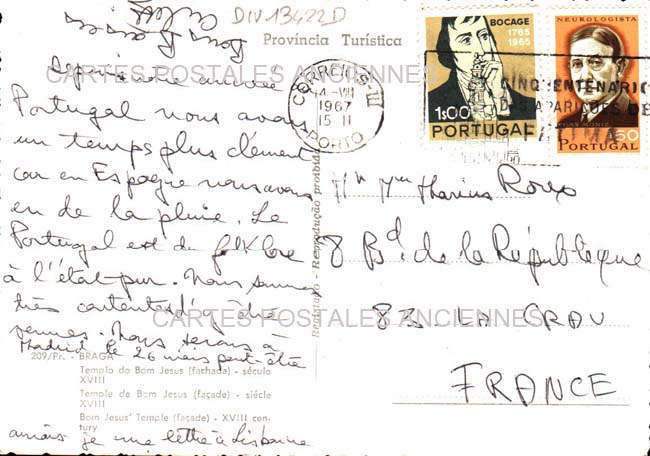 DIV13422D
Província Turística
Bons Baisers
CORREIOS
4-VIII
1967
15 H
PORTO
BOCAGE
1765
1965
1$00
PORTUGAL
NEUROLOGISTA
EGAS MONIZ
50
PORTUGAL
CINQUENTENÁRIO
DAS APARIÇÕES DE
FÁTIMA
CARTES POSTALES ANCIENNES
depuis notre arrivée
Portugal nous avons
un temps plus clément
car en Espagne nous avons
eu de la pluie. Le
Portugal est du folklore
à l'état pur. Nous sommes
très contents d'y être
venues. Nous serons à
Madrid le 26 mais peut-être
aurais je une lettre à Lisbonne
Registado - Reprodução proibida
Mr Mme Marius Roux
8 Bd. de la République
83 LA CRAU
FRANCE
CARTES POSTALES ANCIENNES
209/Pr. - BRAGA
Templo do Bom Jesus (fachada) - século
XVIII
Temple de Bom Jesus (façade) - siécle
XVIII
Bom Jesus' Temple (façade) - XVIII cen-
tury